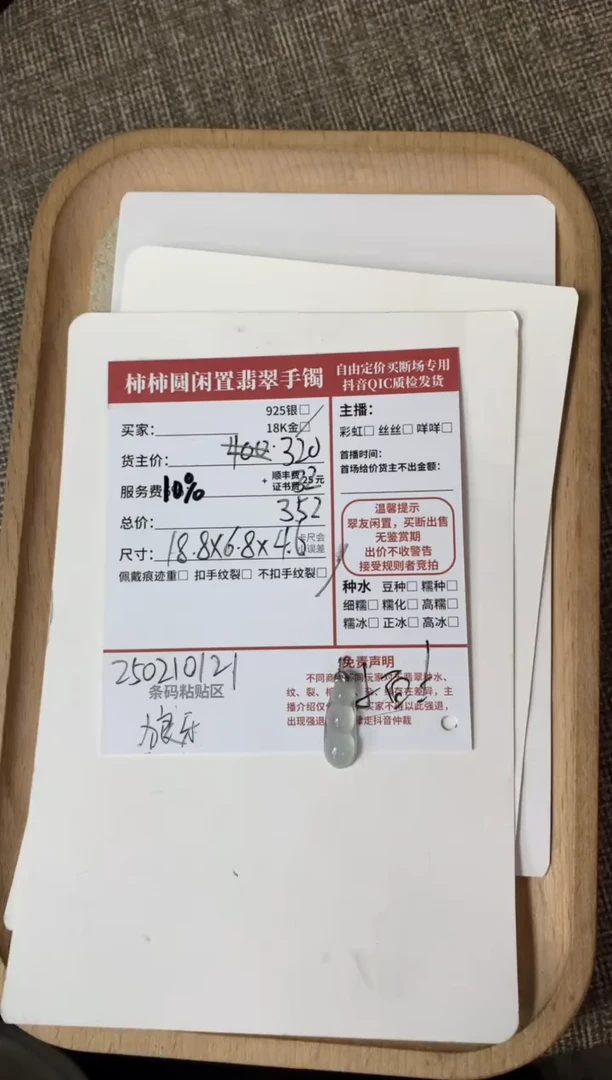 柿柿圆闲置翡翠手镯
自由定价买断场专用
抖音QIC质检发货
925银□
买家：
18K金□
货主价：
400 320
服务费10%
+ 顺丰费
证书费 25元
32
总价：
352
尺寸：18.8X6.8X4.6
卡尺会
小误差
佩戴痕迹重□ 扣手纹裂□ 不扣手纹裂□
主播：
彩虹□ 丝丝□ 咩咩□
首播时间：
首场给价货主不出金额：
温馨提示
翠友闲置，买断出售
无鉴赏期
出价不收警告
接受规则者竞拍
种水 豆种□ 糯种□
细糯□ 糯化□ 高糯□
糯冰□ 正冰□ 高冰□
250210121
条码粘贴区
免责声明
不同商
翡翠种水、
纹、裂、
存在差异，主
播介绍仅
买家不得以此强退，
出现强退
走抖音仲裁